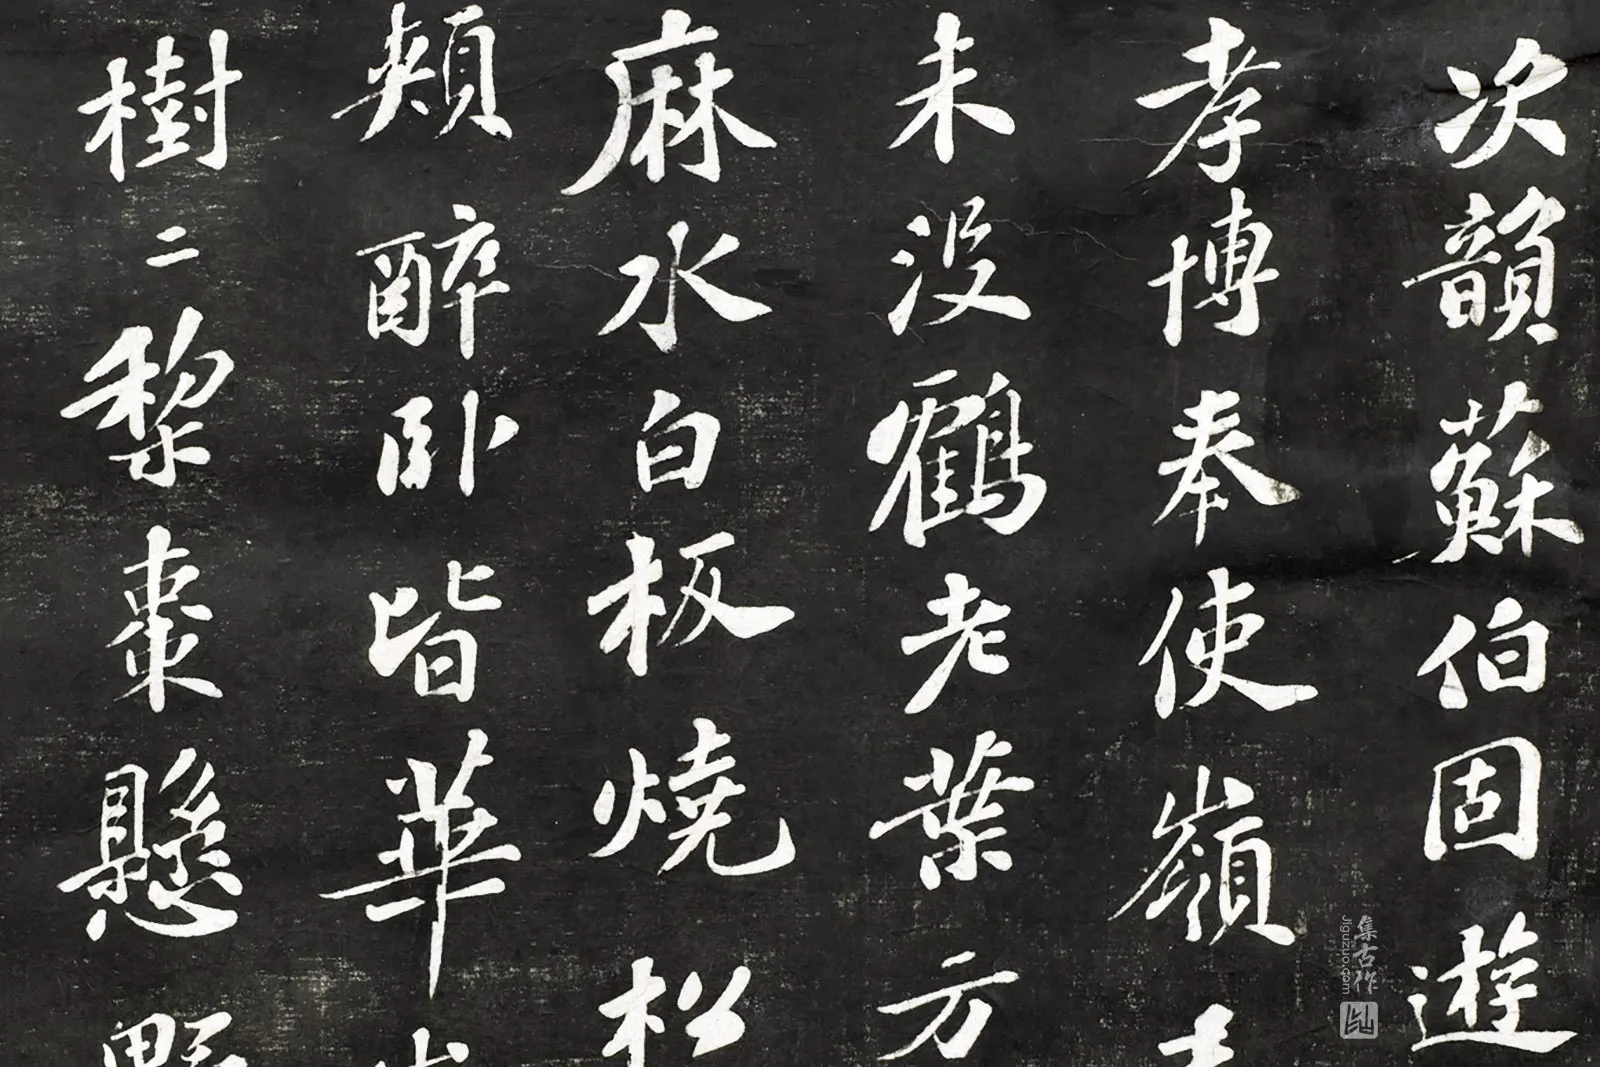 次韻蘇伯固遊
孝博奉使嶺
未没鶴老葉方
麻水白板燒松
頰醉卧皆華
樹二黎棗懸野
集古作
jiguzuo.com